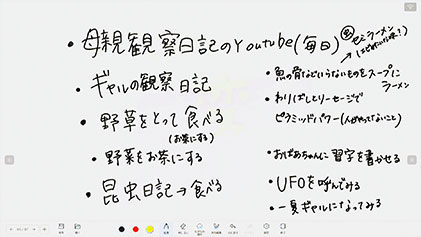 ・母親観察日記のYoutube(毎日)
・ギャルの観察日記
・野草をとって食べる
(お茶にする)
・野菜をお茶にする
・昆虫日記→食べる
セミラーメン
・魚の骨などいらないものをスープに
ラーメン
・わりばしとソーセージで
ピラミッドパワー(人がやってないこと)
・おばあちゃんに習字を書かせる
・UFOを呼んでみる
・一員ギャルになってみる